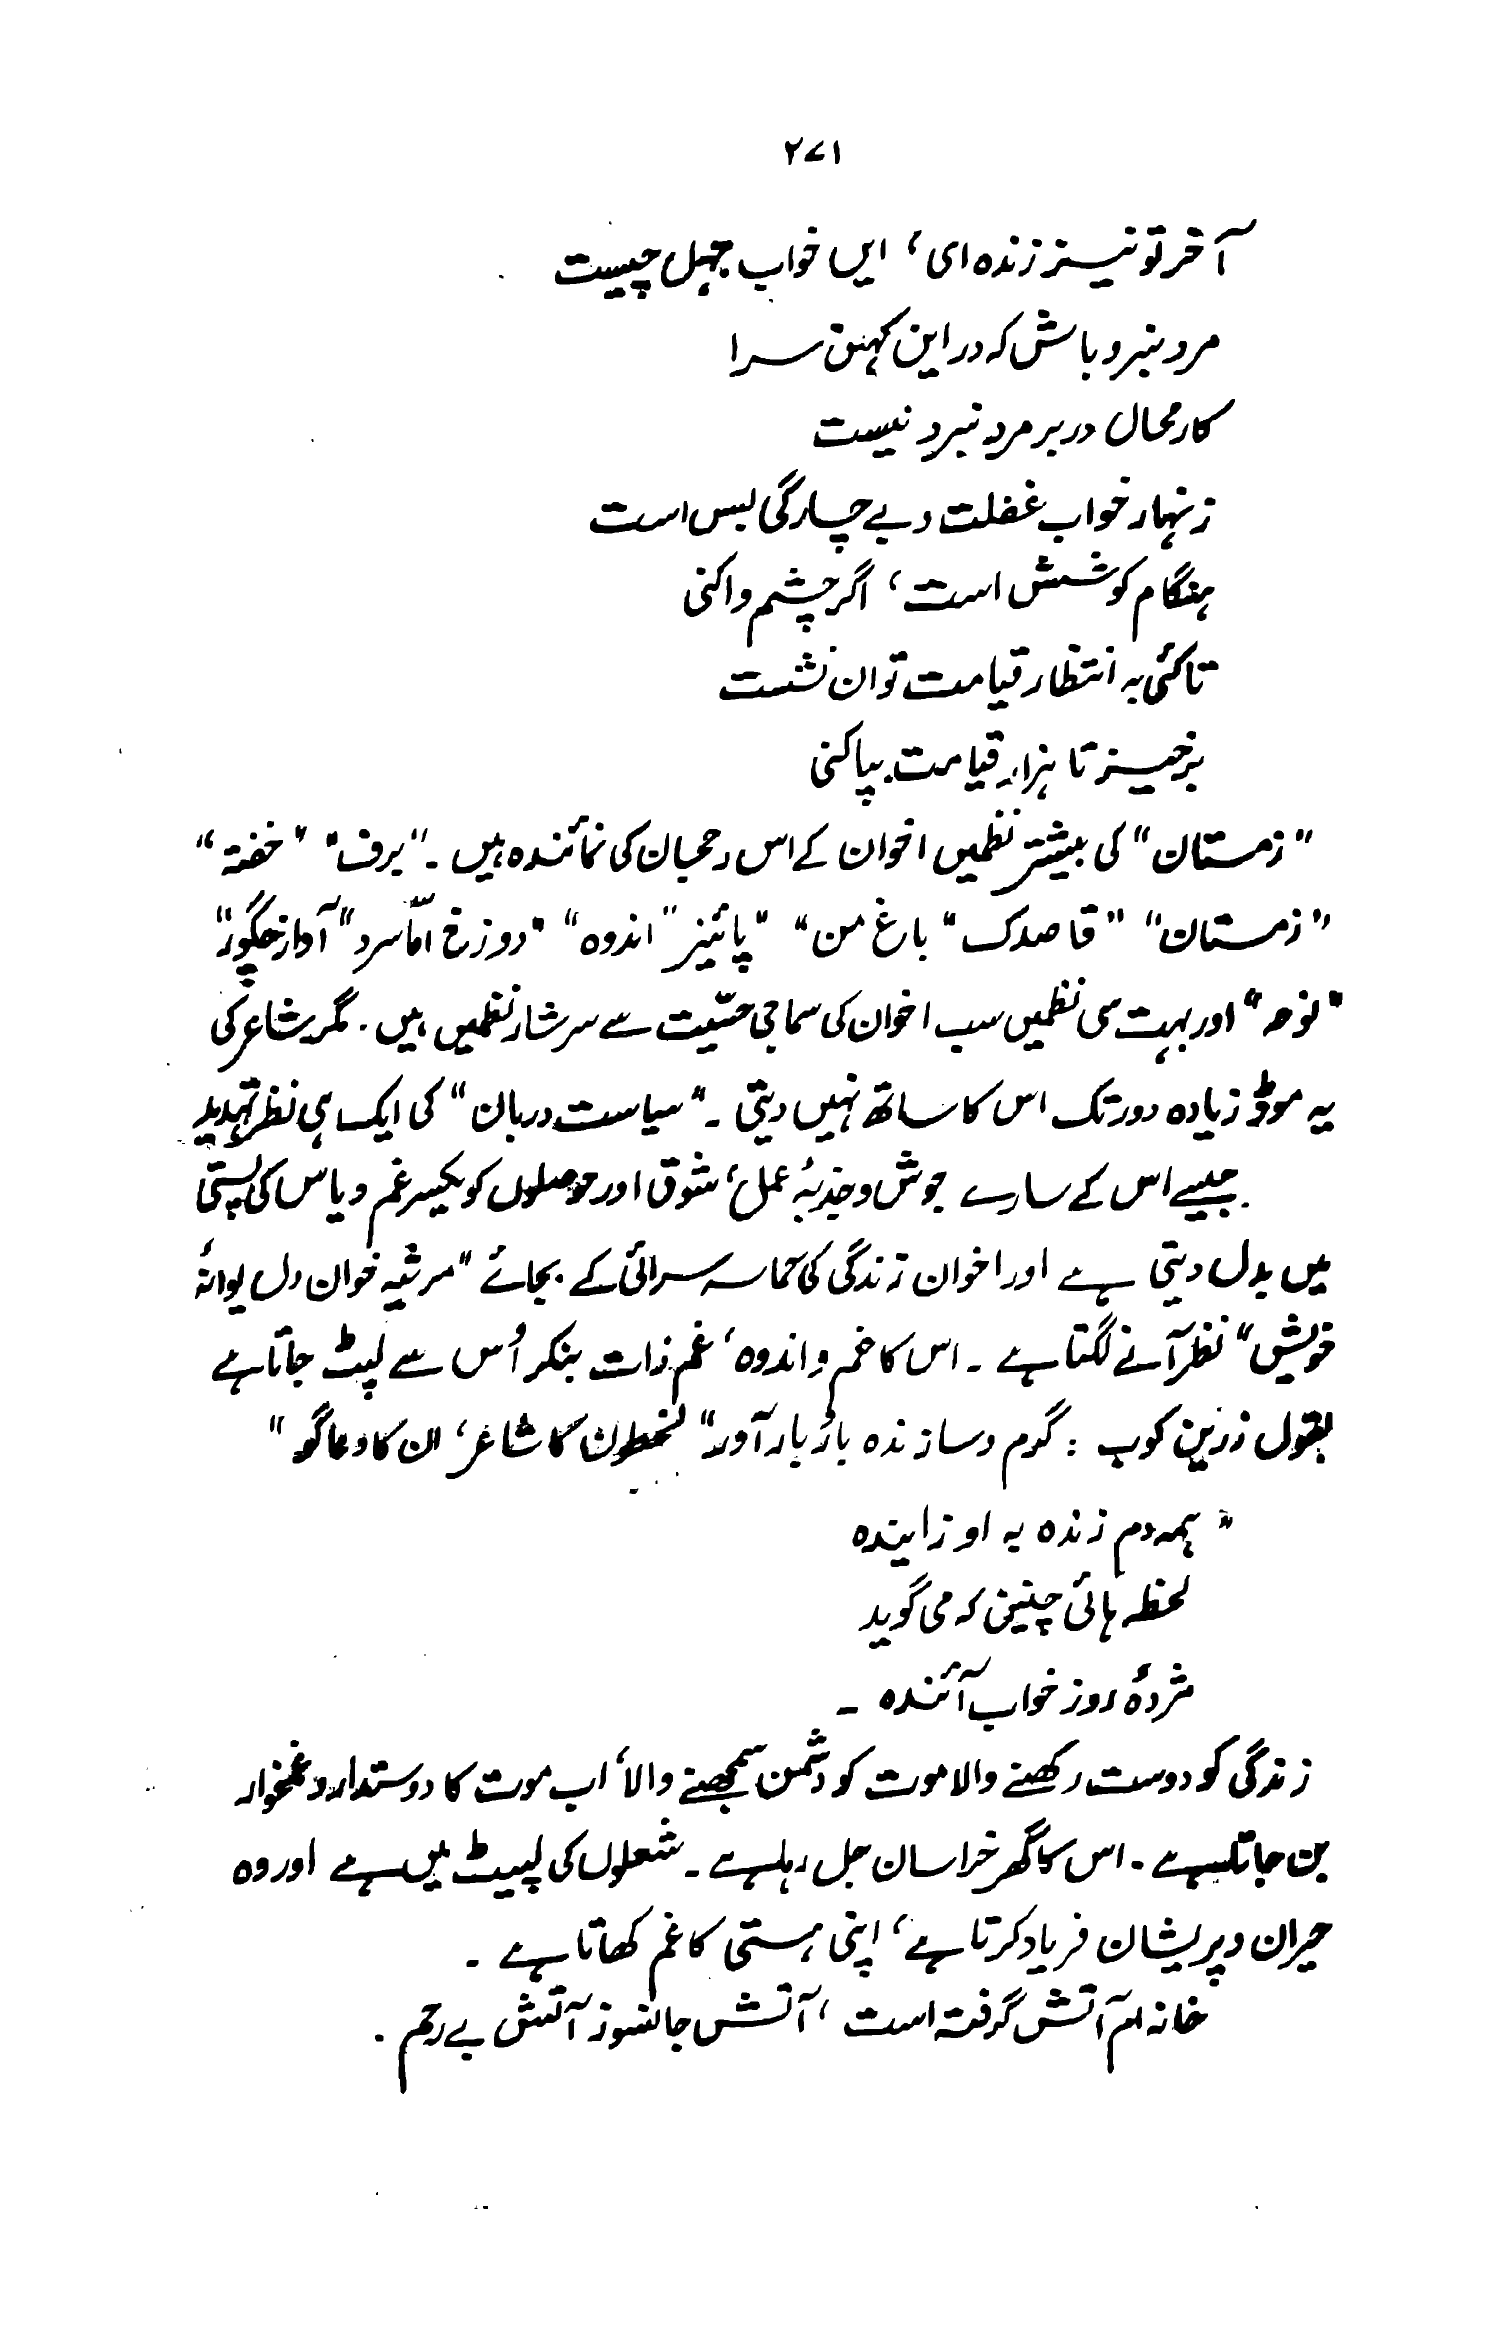 ۲۷۱
آخر تو نیسز زندہ ای، ایں خواب جہل چیست
مرد نبرد باش کہ در این کہن سرا
کار محال در بر مرد نبرد نیست
زنہار خواب غفلت و بے چارگی بس است
ہنگام کوشش است، اگر چشم واکنی
تاکئی بہ انتظار قیامت توان نشست
برخیز تا ہزار قیامت بپاکنی
"زمستان" کی بیشتر نظمیں اخوان کے اس رحجان کی نمائندہ ہیں۔ "برف" "خفتہ"
"زمستان" "قاصدک" باغ من" "پائیز" اندوہ" "دوزخ امّا سرد" آواز چگور"
"نوحہ" اور بہت سی نظمیں سب اخوان کی سماجی حسّیت سے سرشار نظمیں ہیں۔ مگر شاعر کی
یہ موڈ زیادہ دور تک اس کا ساتھ نہیں دیتی۔ "سیاست دربان" کی ایک ہی نظر تہدید
جیسے اس کے سارے جوش و جذبۂ عمل، شوق اور حوصلوں کو یکسر غم و یاس کی پستی
میں بدل دیتی ہے اور اخوان زندگی کی حماسہ سرائی کے بجائے "مرثیہ خوان دل یوانۂ
خویش" نظر آنے لگتا ہے۔ اس کا غم و اندوہ، غم ذات بنکر اُس سے لپٹ جاتا ہے
بقول زرین کوب : گرم و سازندہ بارُ بار آور" لحظوں کا شاعر، ان کا دعاگو"
"ہمہ دم زندہ بہ او زایندہ
لحظہ ہائی چنین کہ می گوید
مژدۂ روز خواب آئندہ ۔
زندگی کو دوست رکھنے والا موت کو دشمن سمجھنے والا، اب موت کا دوستدار و غمخوار
بن جاتا ہے۔ اس کا گھر خراسان جل رہا ہے۔ شعلوں کی لپیٹ میں ہے اور وہ
حیران و پریشان فریاد کرتا ہے، اپنی ہستی کا غم کھاتا ہے ۔
خانہ ام آتش گرفتہ است، آتش جانسوز آتش بے رحم ۔